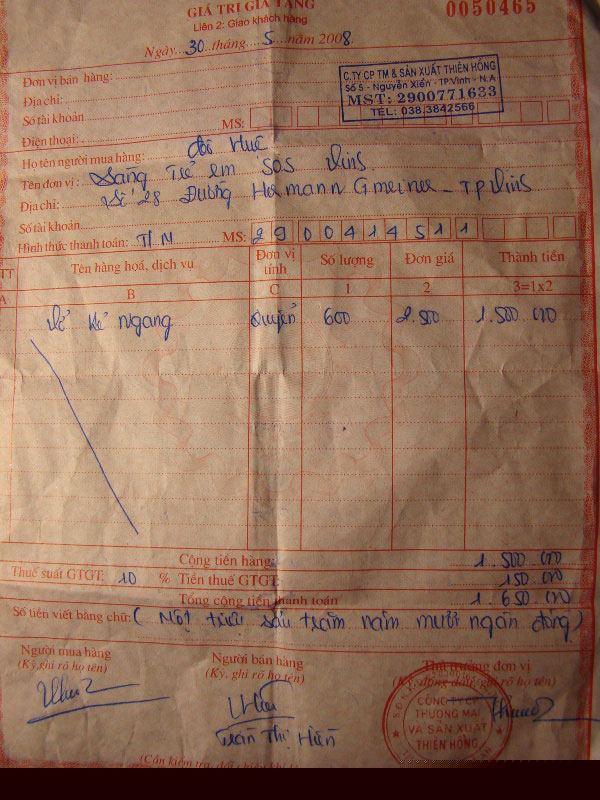 GIÁ TRỊ GIA TĂNG
Liên 2: Giao khách hàng
0050465
Ngày...30...tháng...5...năm 2008.
Đơn vị bán hàng:
C.TY CP TM & SẢN XUẤT THIÊN HỒNG
Số 5 - Nguyễn Xiển - TP.Vinh - N.A
MST: 2900771633
TEL: 038.3842566
Địa chỉ:
Số tài khoản
Điện thoại:
MS:
Họ tên người mua hàng:
Tên đơn vị: Làng Trẻ em SOS Vinh
Địa chỉ: Số 28 Đường Hermann Gmeiner - TP Vinh
Số tài khoản:
Hình thức thanh toán: T/M MS: 2900414511
TT Tên hàng hoá, dịch vụ Đơn vị tính Số lượng Đơn giá Thành tiền
A B C 1 2 3=1x2
Vở kẻ ngang quyển 600 2.500 1.500.000
Cộng tiền hàng: 1.500.000
Thuế suất GTGT: 10 % Tiền thuế GTGT: 150.000
Tổng cộng tiền thanh toán 1.650.000
Số tiền viết bằng chữ: ( Một triệu sáu trăm năm mươi ngàn đồng)
Người mua hàng Người bán hàng Thủ trưởng đơn vị
(Ký, ghi rõ họ tên) (Ký, ghi rõ họ tên) (Ký, đóng dấu, ghi rõ họ tên)
CÔNG TY CP
THƯƠNG MẠI
VÀ SẢN XUẤT
THIÊN HỒNG
Trần Thị Hiền